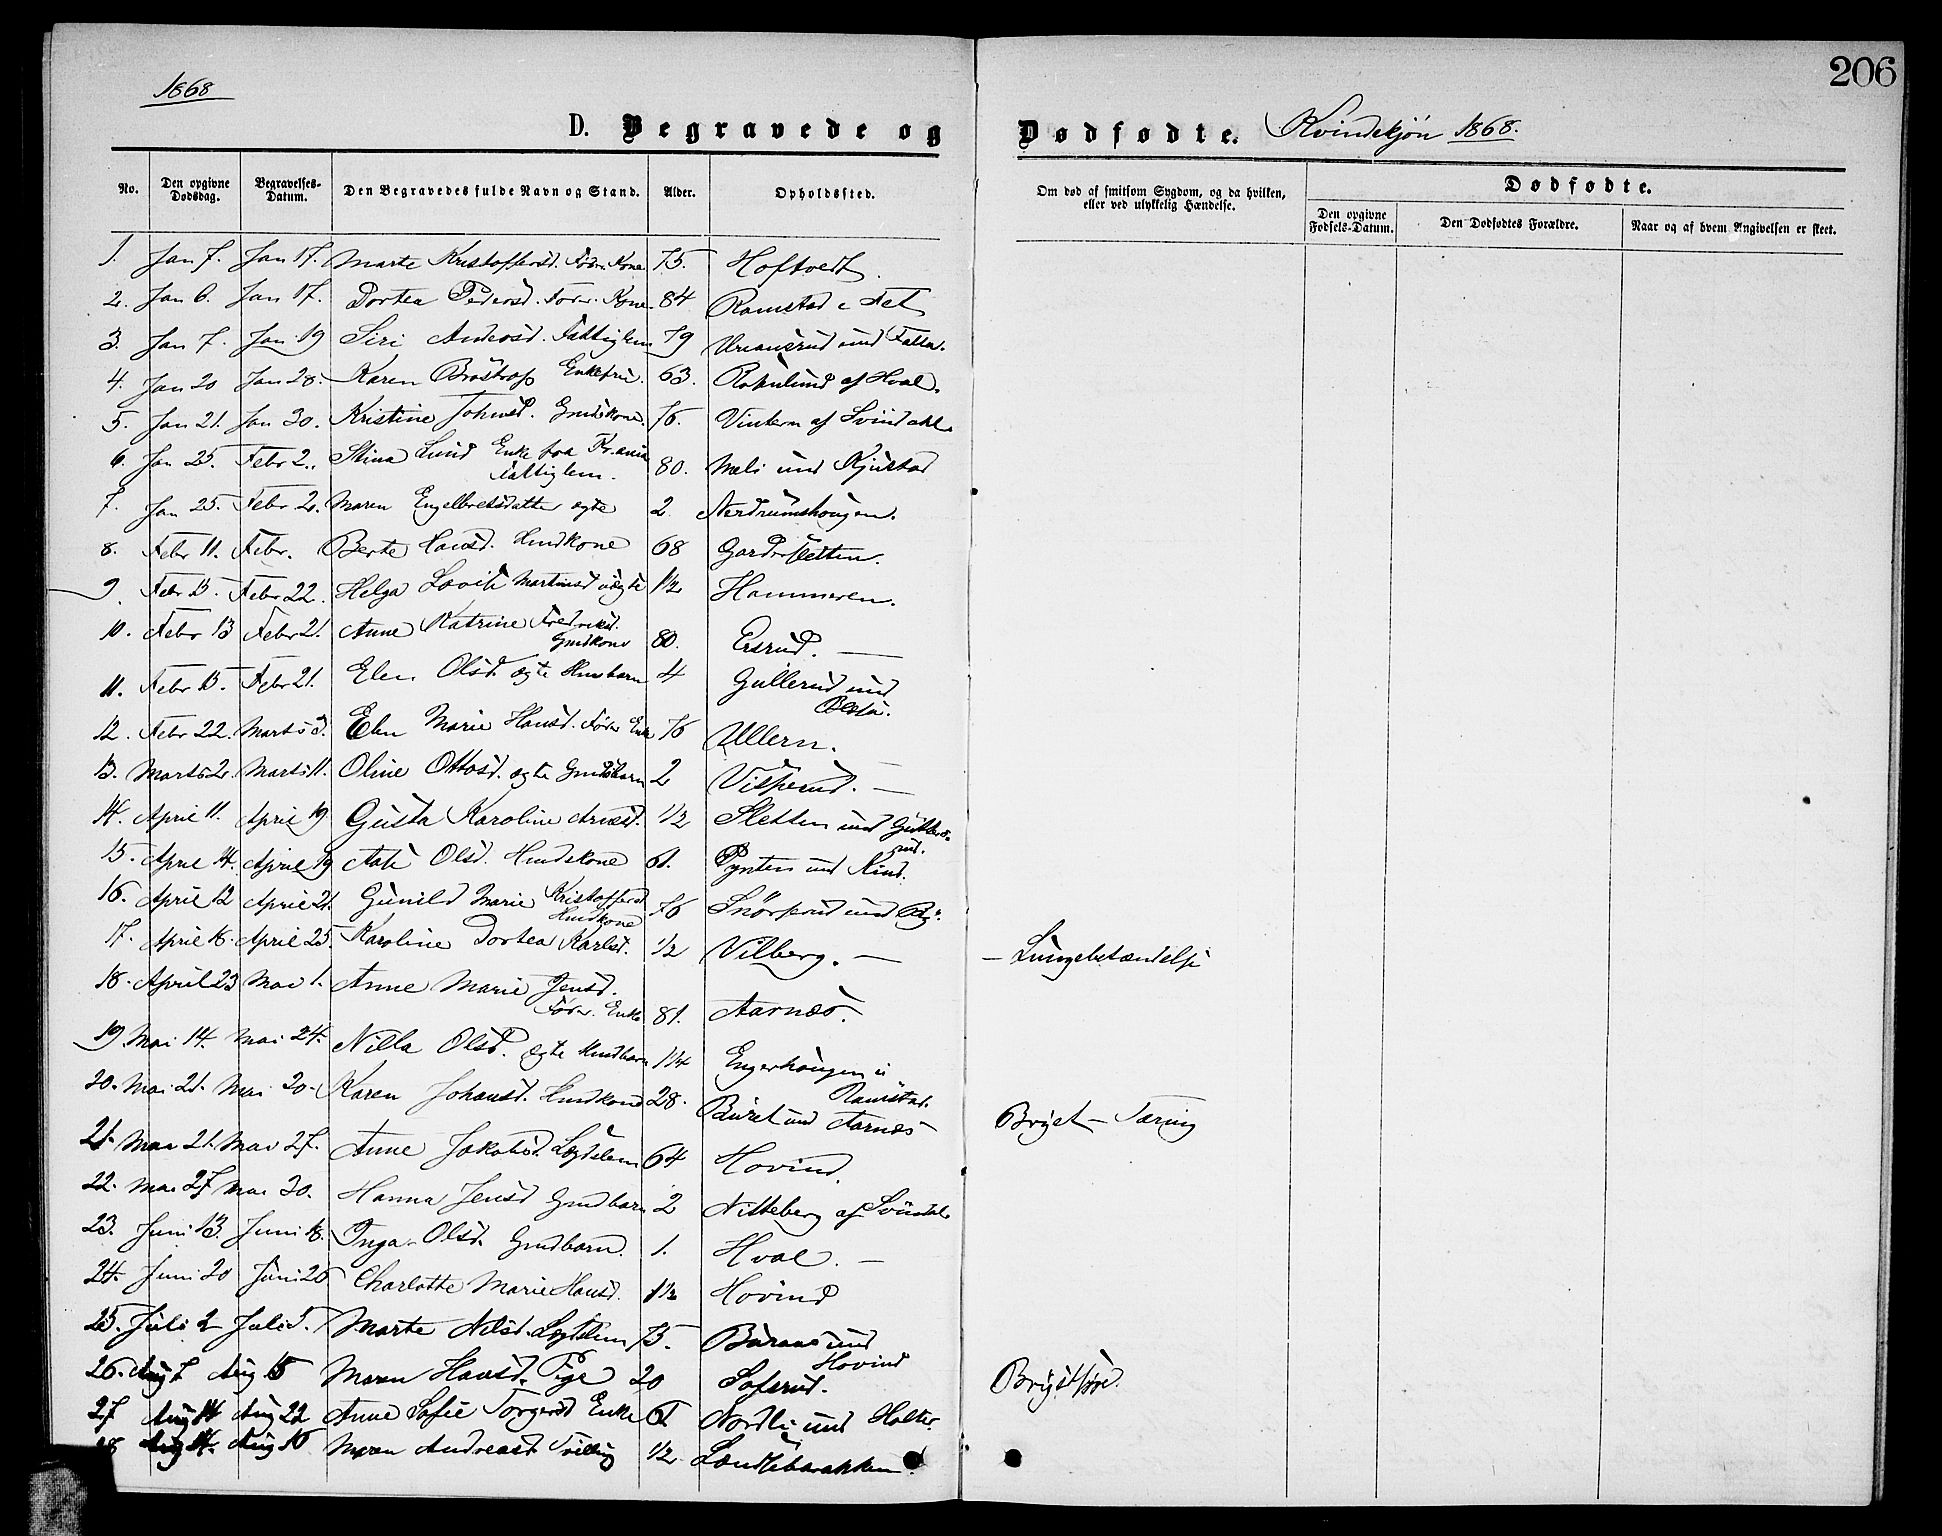 1868
206
D. Begravede og Dødfødte. Kvindekjön 1868.
No. Den opgivne Dødsdag. Begravelses-Datum. Den Begravedes fulde Navn og Stand. Alder. Opholdssted. Om død af smitsom Sygdom, og da hvilken, eller ved ulykkelig Hændelse. Dødfødte.
Den opgivne Fødsels-Datum. Den Dødfødtes Forældre. Naar og af hvem Angivelsen er skeet.
1. Jan 7. Jan 17. Marte Kristoffersd. Födr. Kone 75. Hoftvedt.
2. Jan 6. Jan 17. Dortea Pedersd. Födr. Kone 84 Ramstad i Fet
3. Jan 7. Jan 19 Siri Andersd. Fattiglem 79 und Falla.
4. Jan 20 Jan 28. Karen Bröstrop Enkefrue. 63. af Hval.
5. Jan 21. Jan 30. Kristine Johnsd. Grndkone. 76. Vintern af Svindahl.
6. Jan 25. Febr 2. Stina Lund Enke fra Kr.ania
Fattiglem. 80. Mæli und Kjustad
7. Jan 25. Febr 2. Maren Engelbretsdatter ægte 2 Nerdrumshougen.
8. Febr 11. Febr. Berte Hansd. Hmdkone 68 Gardersletten.
9. Febr 13. Febr 22. Helga Lovise Martinsd uægte 1½ Hammeren.
10. Febr 13 Febr 21. Anne Katrine Fredriksd.
Gmdkone 80. Ersrud. —
11. Febr 15. Febr 21. Elen Olsd. ægte Husbarn 4 Gullerud und
12. Febr 22. Marts 3. Elen Marie Hansd. Födr. Enke 76 Ullern.
13. Marts 2. Marts 11. Oline Ottosd. ægte Gmdsbarn 2 Visperud. —
14. April 11. April 19 Gusta Karoline Arnesd. ½ Sletten und
15. April 14. April 19 Olsd. Hmdskone 61. Pynten und Rud.
16. April 12 April 21. Gunild Marie Kristoffersd
Hmdkone 76 Snörperud und By.
17. April 18. April 25. Karoline Dortea Karlsd. ½ Vilberg. — — Lungebetændelse
18. April 23 Mai 1. Anne Marie Jensd.
Födr. Enke 81. Aarnæs.
19. Mai 14. Mai 24. Nilla Olsd. ægte Hmdbarn 1¼ Engerhougen u
Ramstad.
20. Mai 21. Mai 30. Karen Johansd. Hmdkone 28. Buret und Aarnæs Bryst-Tæring
21. Mai 21. Mai 27. Anne Jakobsd. Lægdslem 64 Hovind.
22. Mai 27 Mai 30. Hanna Jensd Gmdbarn 2 Nitteberg af Svindal
23. Juni 13. Juni 18. Inga Olsd. Gmdbarn. 1. Hval. —
24. Juni 20 Juni 26 Charlotte Marie Hansd. 1½ Hovind
25. Juli 2 Juli Marte Nilsd. Lægdslem 75. Buraas und
Hovind
26. Aug Aug 15 Maren Hansd. Pige 20 Soferud. Brystsyge.
27 Aug 14 Aug 22 Anne Sofie Torgersd Enke Nordli und Holter.
28 Aug 14. Aug Maren Andreasd. Tvilling ½